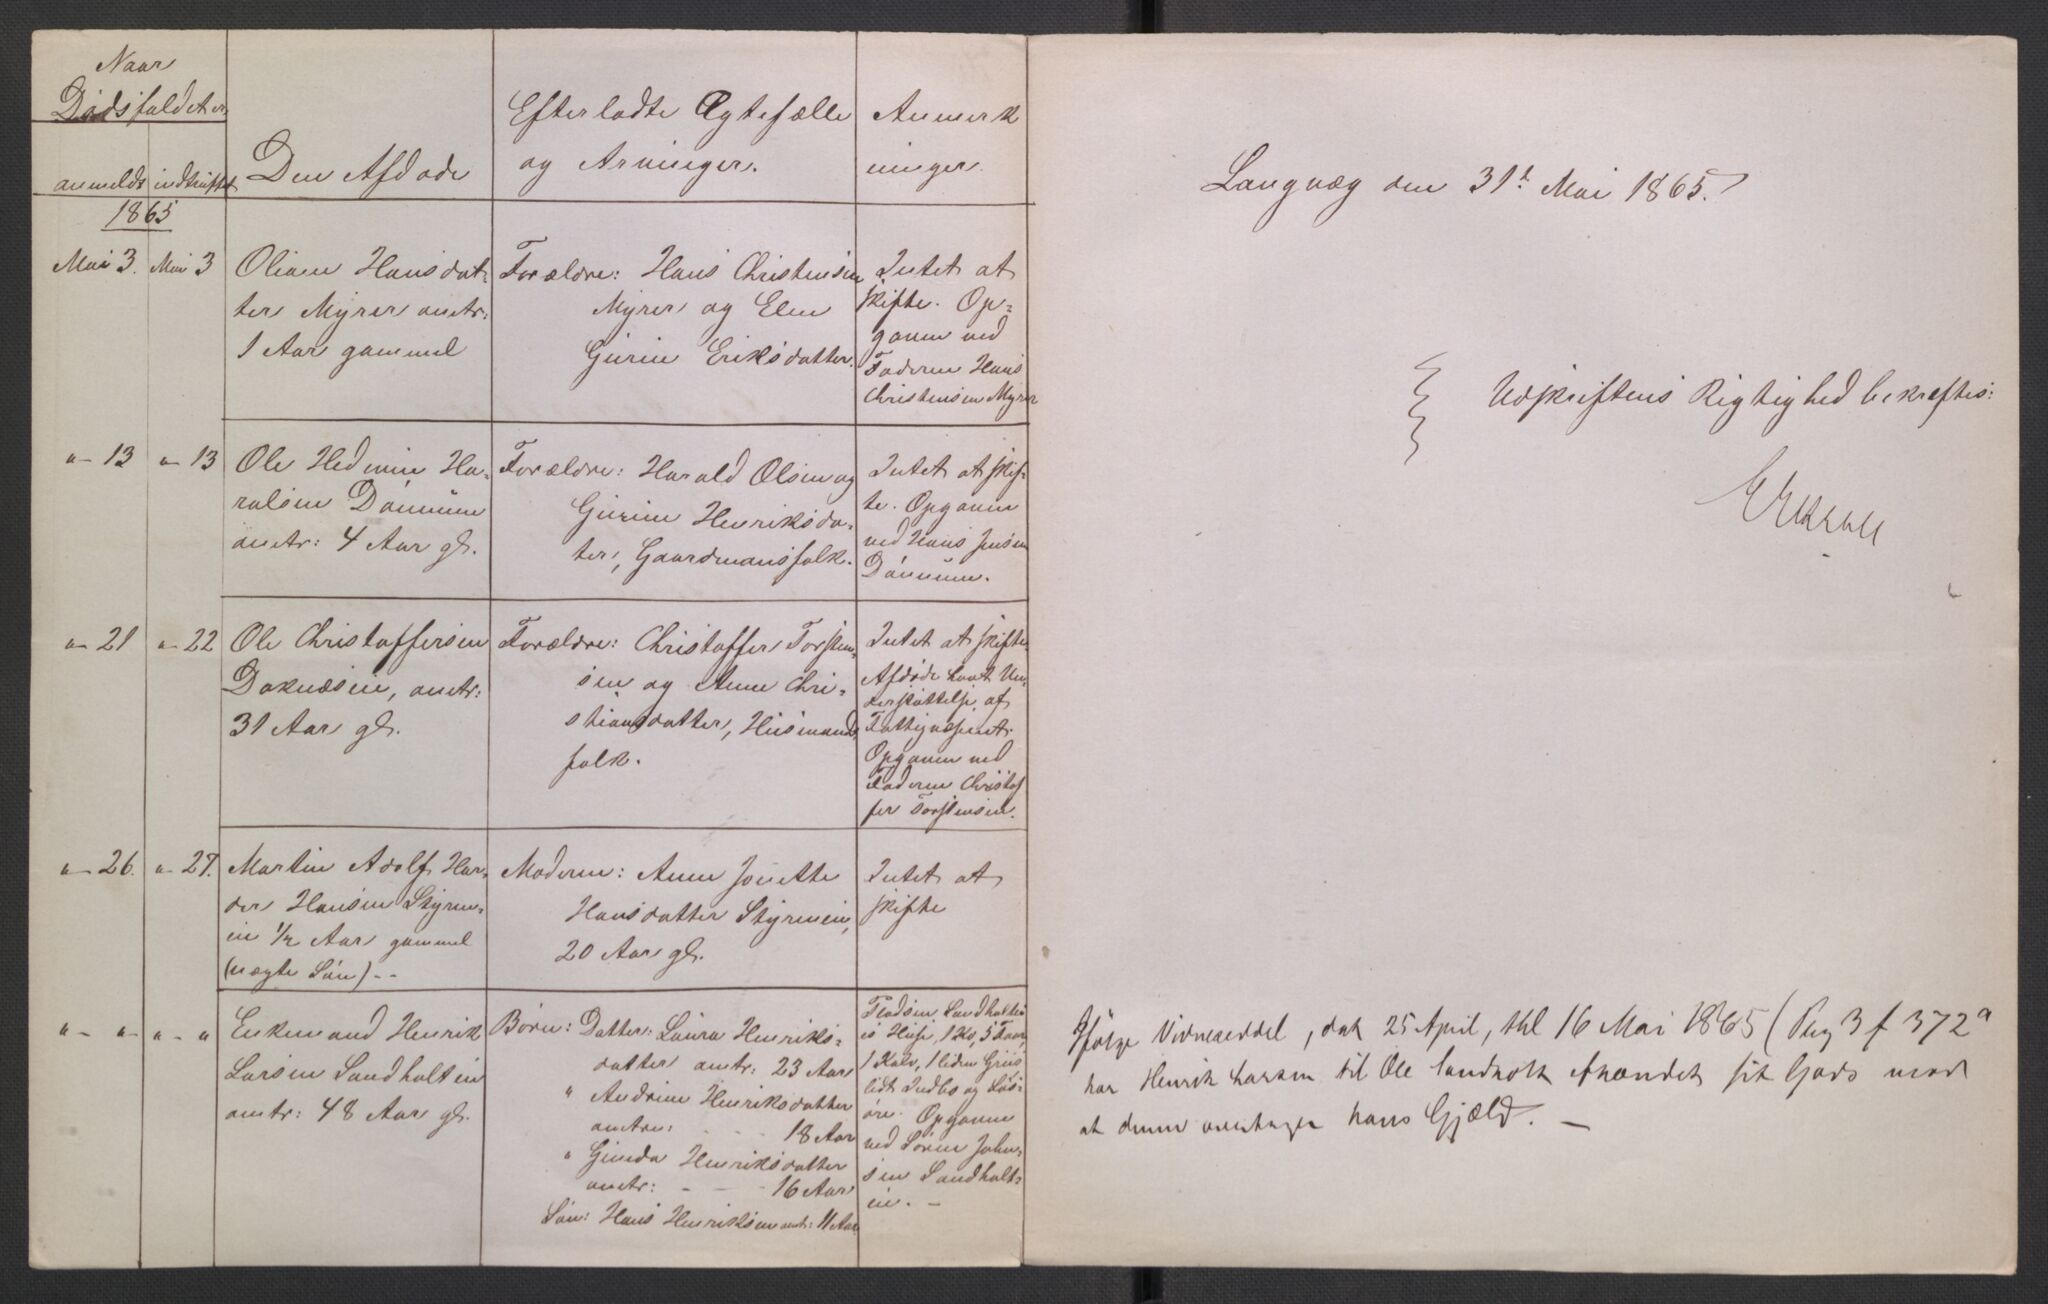 Naar
Dødsfaldet er
anmeldt indskriftet
Den Afdøde
Efterladte Ægtefælle
og Arvinger.
Anmærk
ninger.
1865
Mai 3. Mai 3
Oliane Hansdat-
ter Myrer omtr:
1 Aar gammel
Forældre: Hans Christensen
Myrer og Elen
Gurine Eriksdatter.
Intet at
skifte. Op-
gaven ved
Faderen Hans
Christensen Myrer
"— 13 "— 13
Ole Hedevin Ha-
ralsen
omtr: 4 Aar gl.
Forældre: Harald Olsen og
Gurine Henriksda-
ter, Gaardmansfolk.
Intet at skif-
te. Opgaven
ved Hans Jensen
"— 21 "— 22
Ole Christoffersen
Doknæsen, omtr:
31 Aar gl.
Forældre: Christoffer Torsten-
sen og Anne Chri-
stiansdatter, Husmands
folk.
Intet at skifte.
Afdøde havt Un-
derstøttelse af
Fattigvæsenet.
Opgaven ved
Faderen Christof
fer Torstensen.
"— 26. "— 27.
Martin Adolf Har-
der Hansen Styrme-
en 1/2 Aar gammel
(uægte Søn) --
Moderen: Anne Jonette
Hansdatter Styrmoen,
20 Aar gl.
Intet at
skifte
"— " "— "
Enkemand Henrik
Larsen Sandholten
omtr: 48 Aar gl.
Børn: Datter: Laura Henriks-
datter omtr: 23 Aar
" Andrine Henriksdatter
omtr: - - 18 Aar
" Gunda Henriksdatter
omtr: - - - 16 Aar
Søn: Hans Henriksen omtr: 11 Aar
Pladsen Sandholten
is Huse, 1 Ko, 5 Faar,
1 Kalv, 1 liden Griis
lidt Indbo og Løs-
øre. Opgaven
ved Sören John-
sen Sandholt-
en. —
Langvæg den 31t Mai 1865.
Udskriftens Rigtighed bekræftes:
Ifølge Vidneseddel, dat 25 April, thl 16 Mai 1865 (Reg 3 f 372a
har Henrik Larsen til Ole Sandholt afhændet sit Gods mod
at denne overtager hans Gjæld. —